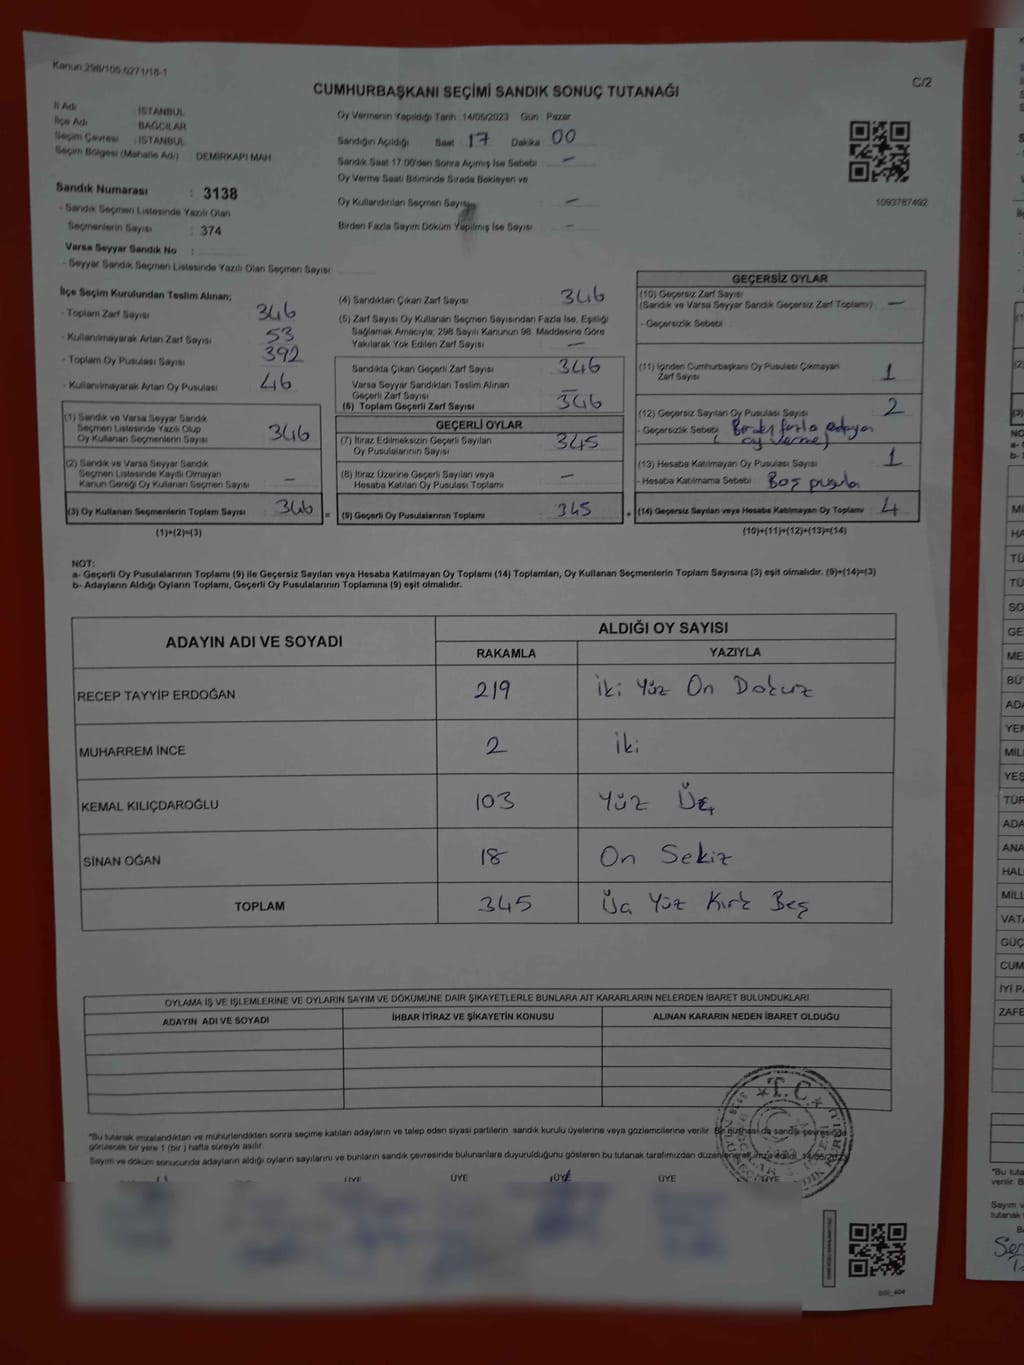 Kanun:298/105:6271/18-1
C/2
CUMHURBAŞKANI SEÇİMİ SANDIK SONUÇ TUTANAĞI
İl Adı : İSTANBUL
İlçe Adı : BAĞCILAR
Seçim Çevresi : İSTANBUL
Seçim Bölgesi (Mahalle Adı) : DEMİRKAPI MAH
Sandık Numarası : 3138
- Sandık Seçmen Listesinde Yazılı Olan
Seçmenlerin Sayısı : 374
Varsa Seyyar Sandık No :
- Seyyar Sandık Seçmen Listesinde Yazılı Olan Seçmen Sayısı:
Oy Vermenin Yapıldığı Tarih : 14/05/2023 Gün : Pazar
Sandığın Açıldığı Saat 17 Dakika 00
Sandık Saat 17:00'den Sonra Açımış İse Sebebi : —
Oy Verme Saati Bitiminde Sırada Bekleyen ve
Oy Kullandırılan Seçmen Sayısı : —
Birden Fazla Sayım Döküm Yapılmış İse Sayısı : —
1093787492
İlçe Seçim Kurulundan Teslim Alınan;
- Toplam Zarf Sayısı : 346
- Kullanılmayarak Artan Zarf Sayısı : 53
- Toplam Oy Pusulası Sayısı : 392
- Kullanılmayarak Artan Oy Pusulası : 46
(1) Sandık ve Varsa Seyyar Sandık
Seçmen Listesinde Yazılı Olup
Oy Kullanan Seçmenlerin Sayısı : 346
(2) Sandık ve Varsa Seyyar Sandık
Seçmen Listesinde Kayıtlı Olmayan
Kanun Gereği Oy Kullanan Seçmen Sayısı : —
(3) Oy Kullanan Seçmenlerin Toplam Sayısı : 346 =
(1)+(2)=(3)
(4) Sandıktan Çıkan Zarf Sayısı : 346
(5) Zarf Sayısı Oy Kullanan Seçmen Sayısından Fazla İse, Eşitliği
Sağlamak Amacıyla, 298 Sayılı Kanunun 98. Maddesine Göre
Yakılarak Yok Edilen Zarf Sayısı : —
Sandıkta Çıkan Geçerli Zarf Sayısı : 346
Varsa Seyyar Sandıktan Teslim Alınan
Geçerli Zarf Sayısı : —
(6) Toplam Geçerli Zarf Sayısı : 346
GEÇERLİ OYLAR
(7) İtiraz Edilmeksizin Geçerli Sayılan
Oy Pusulalarının Sayısı : 345
(8) İtiraz Üzerine Geçerli Sayılan veya
Hesaba Katılan Oy Pusulası Toplamı : —
(9) Geçerli Oy Pusulalarının Toplamı : 345 +
GEÇERSİZ OYLAR
(10) Geçersiz Zarf Sayısı
(Sandık ve Varsa Seyyar Sandık Geçersiz Zarf Toplamı) : —
- Geçersizlik Sebebi :
(11) İçinden Cumhurbaşkanı Oy Pusulası Çıkmayan
Zarf Sayısı : 1
(12) Geçersiz Sayılan Oy Pusulası Sayısı : 2
- Geçersizlik Sebebi : Birden fazla adaya
oy verme
(13) Hesaba Katılmayan Oy Pusulası Sayısı : 1
- Hesaba Katılmama Sebebi : Boş pusula
(14) Geçersiz Sayılan veya Hesaba Katılmayan Oy Toplamı : 4
(10)+(11)+(12)+(13)=(14)
NOT:
a- Geçerli Oy Pusulalarının Toplamı (9) ile Geçersiz Sayılan veya Hesaba Katılmayan Oy Toplamı (14) Toplamları, Oy Kullanan Seçmenlerin Toplam Sayısına (3) eşit olmalıdır. (9)+(14)=(3)
b- Adayların Aldığı Oyların Toplamı, Geçerli Oy Pusulalarının Toplamına (9) eşit olmalıdır.
ADAYIN ADI VE SOYADI
ALDIĞI OY SAYISI
RAKAMLA YAZIYLA
RECEP TAYYİP ERDOĞAN 219 İki Yüz On Dokuz
MUHARREM İNCE 2 İki
KEMAL KILIÇDAROĞLU 103 Yüz Üç
SİNAN OĞAN 18 On Sekiz
TOPLAM 345 Üç Yüz Kırk Beş
OYLAMA İŞ VE İŞLEMLERİNE VE OYLARIN SAYIM VE DÖKÜMÜNE DAİR ŞİKAYETLERLE BUNLARA AİT KARARLARIN NELERDEN İBARET BULUNDUKLARI
ADAYIN ADI VE SOYADI İHBAR İTİRAZ VE ŞİKAYETİN KONUSU ALINAN KARARIN NEDEN İBARET OLDUĞU
*Bu tutanak imzalandıktan ve mühürlendikten sonra seçime katılan adayların ve talep eden siyasi partilerin sandık kurulu üyelerine veya gözlemcilerine verilir. Bir nüshası da sandık çevresinde
görülecek bir yere 1 (bir) hafta süreyle asılır.
Sayım ve döküm sonucunda adayların aldığı oyların sayılarını ve bunların sandık çevresinde bulunanlara duyurulduğunu gösteren bu tutanak tarafımızdan düzenlenerek imza edildi. 14/05/2023
ÜYE ÜYE ÜYE ÜYE ÜYE
T.C.